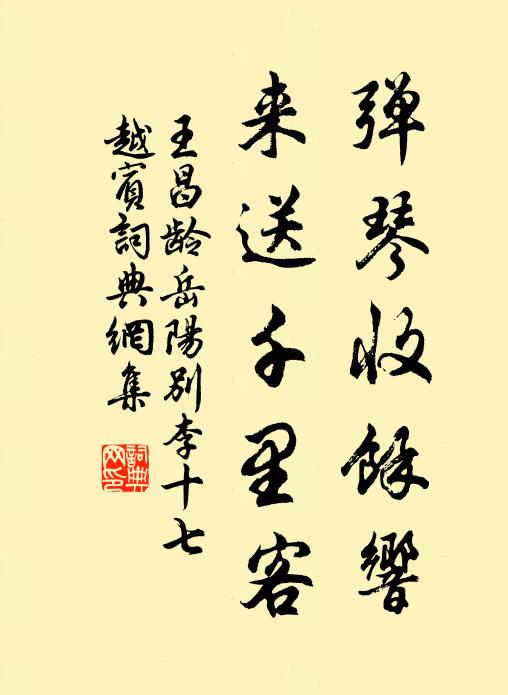 弹琴收馀響
来送千里客
王昌龄岳陽别李十七
越賓詞典網集
詞典
网印